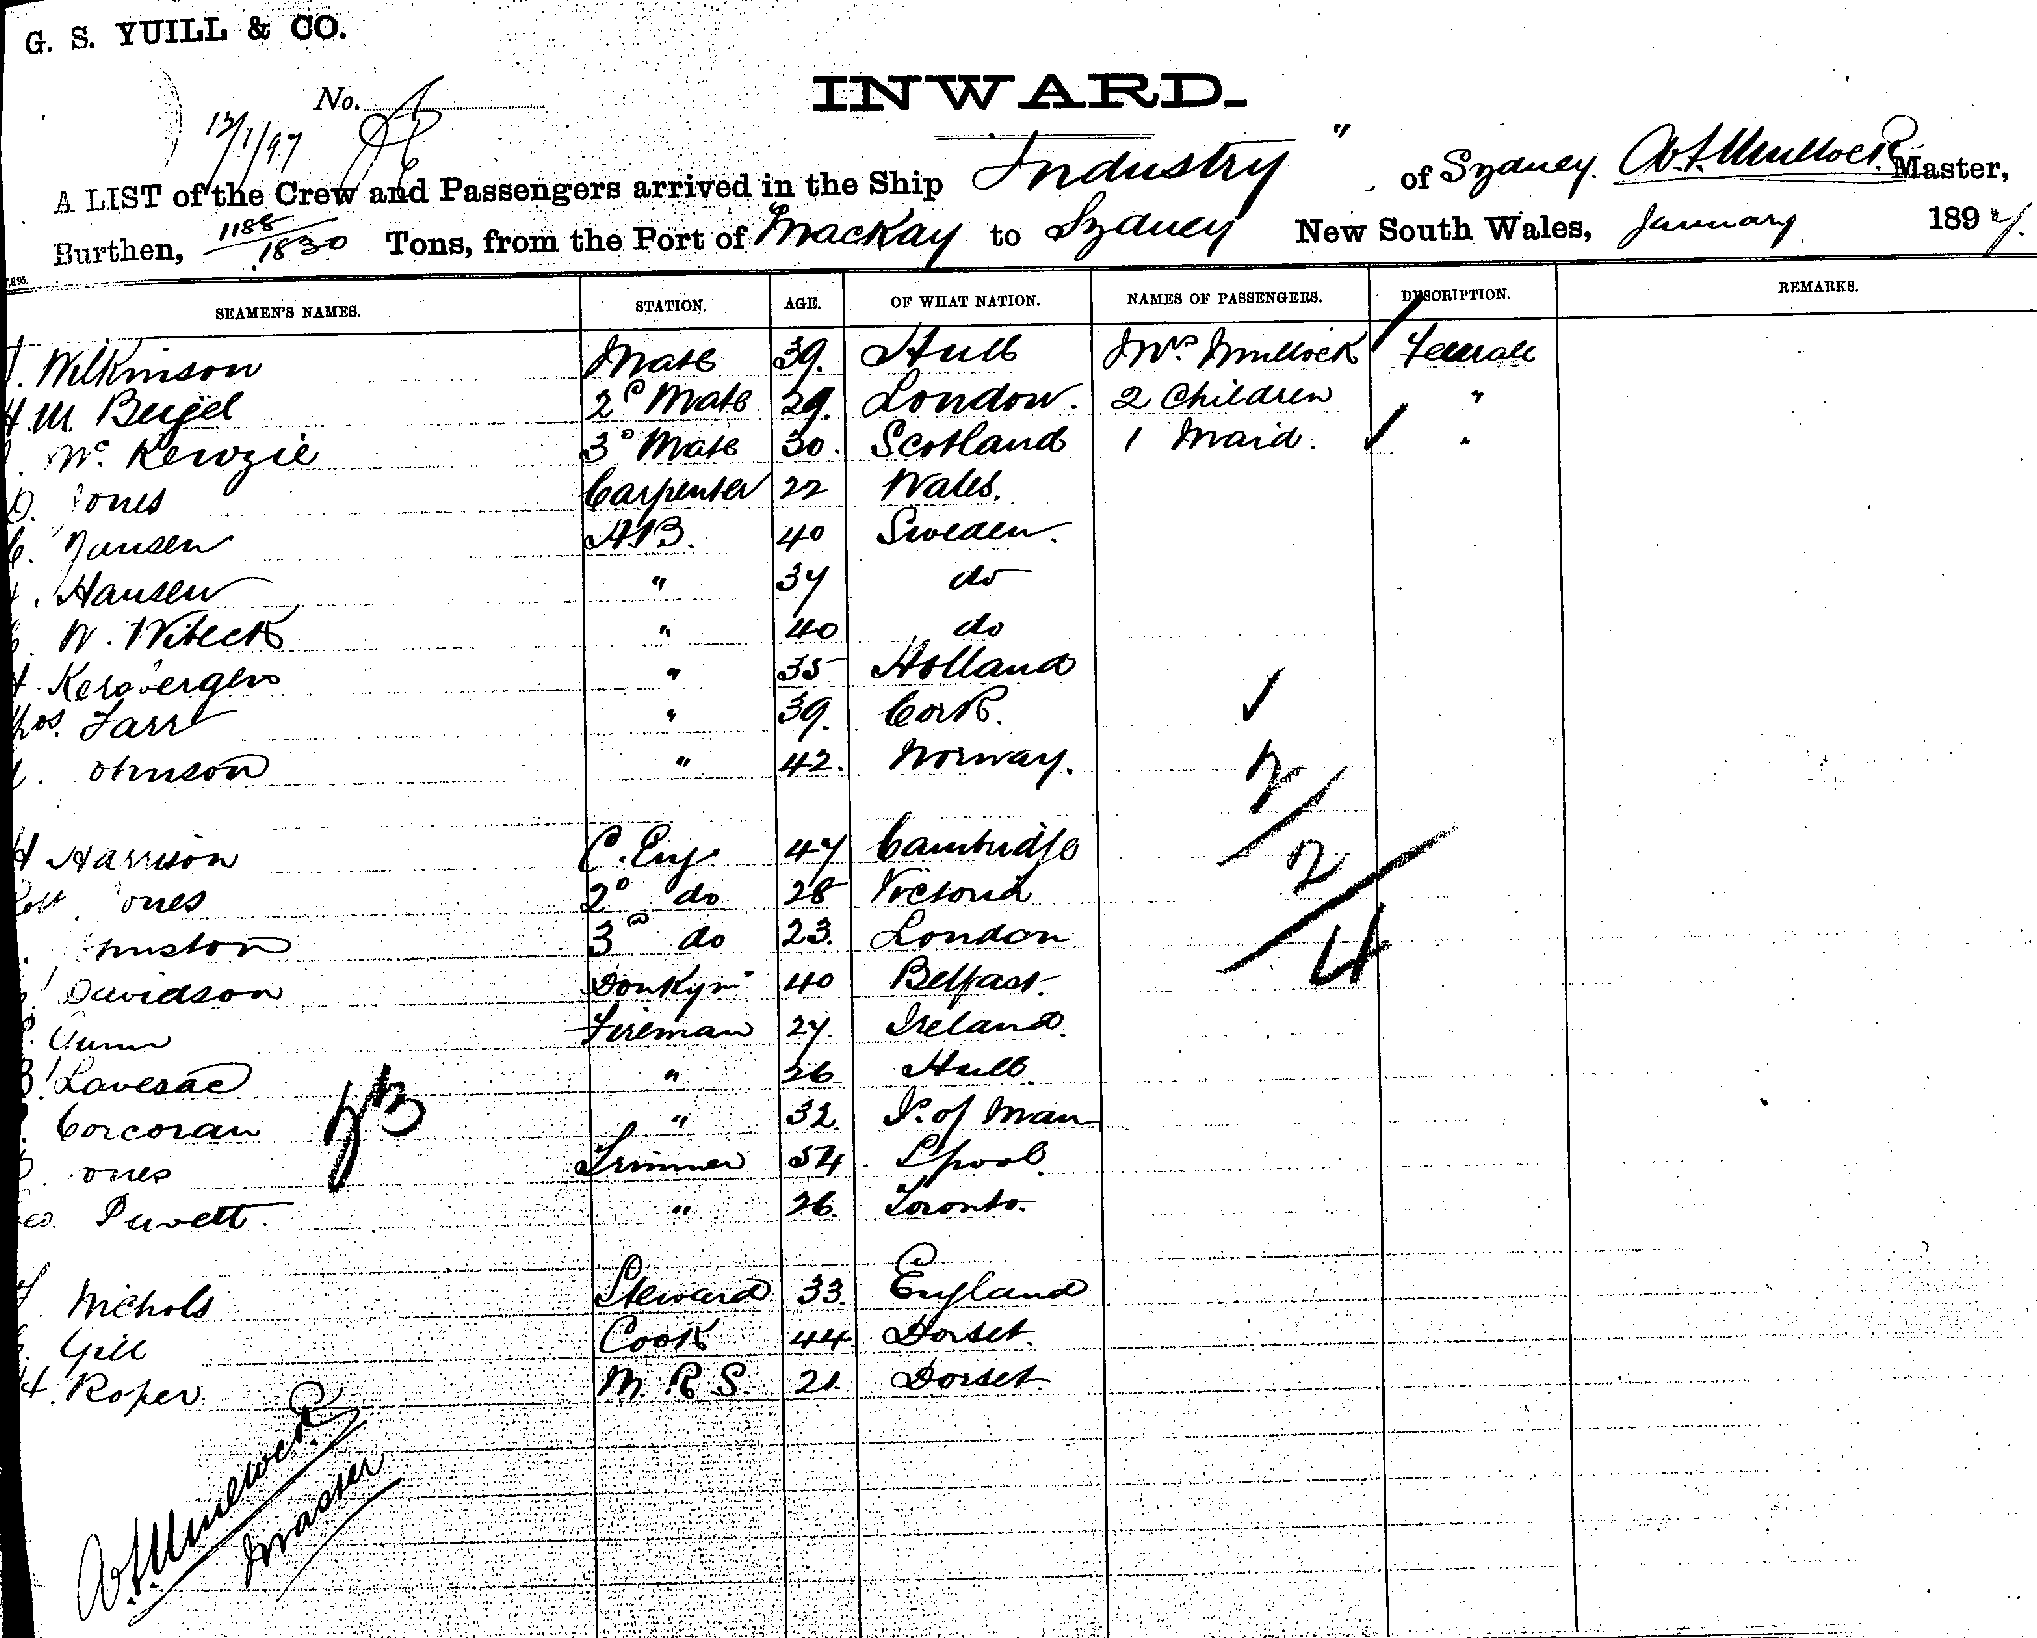 G. S. YUILL & CO.
No.
INWARD.
12/1/97
A LIST of the Crew and Passengers arrived in the Ship Industry " of Sydney. Mullock Master,
Burthen, 1188/1830 Tons, from the Port of Mackay to Sydney New South Wales, January 1897.
SEAMEN'S NAMES. STATION. AGE. OF WHAT NATION. NAMES OF PASSENGERS. DESCRIPTION. REMARKS.
Wilkinson Mate 39. Hull Mrs. Mullock Female
H. M. Beigel 2d Mate 29. London. 2 Children "
Mc. Kenzie 3d Mate 30. Scotland 1 Maid. "
D. Jones Carpenter 22 Wales.
C. Jansen AB. 40 Sweden.
Hansen " 37 do
W. Wibeck " 40 do
" 35 Holland
Thos. Farr " 39. Cork.
Johnson " 42. Norway.
2
H Harrison C. Eng. 47 Cambridge
2
Robt. Jones 2d do 28 Victoria
3d do 23. London
4
Davidson Donkyn 40 Belfast.
Gunn Fireman 27. Ireland.
Lavesac " 26 Hull.
Corcoran " 32 I. of Man
23
Jones Trimmer 54 Lpool.
Geo. " 26. Toronto.
Nichols Steward 33. England
Gill Cook 44 Dorset.
H. Roper M. R S. 21 Dorset.
Master